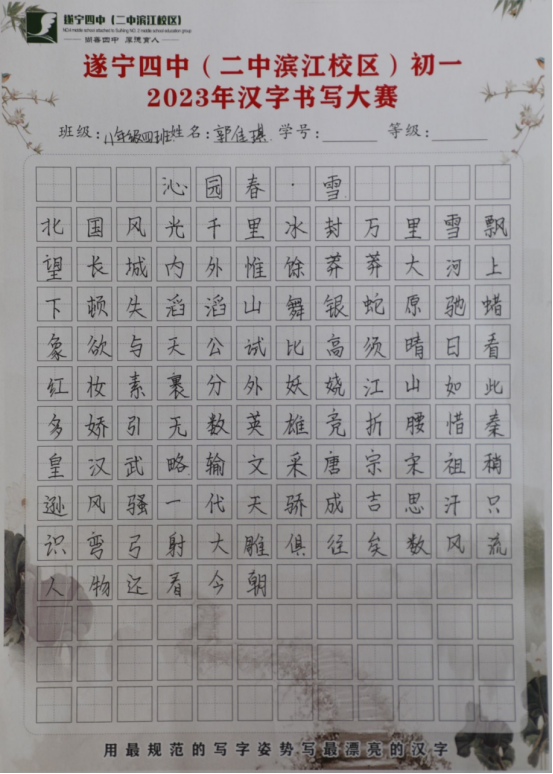 遂宁四中（二中滨江校区）
润泽四中 厚德育人
遂宁四中（二中滨江校区）初一
2023年汉字书写大赛
班级：八年级四班 姓名：郭佳琪 学号： 等级：
沁园春·雪
北国风光千里冰封万里雪飘
望长城内外惟馀莽莽大河上
下顿失滔滔山舞银蛇原驰蜡
象欲与天公试比高须晴日看
红妆素裹分外妖娆江山如此
多娇引无数英雄竞折腰惜秦
皇汉武略输文采唐宗宋祖稍
逊风骚一代天骄成吉思汗只
识弯弓射大雕俱往矣数风流
人物还看今朝
用最规范的写字姿势写最漂亮的汉字